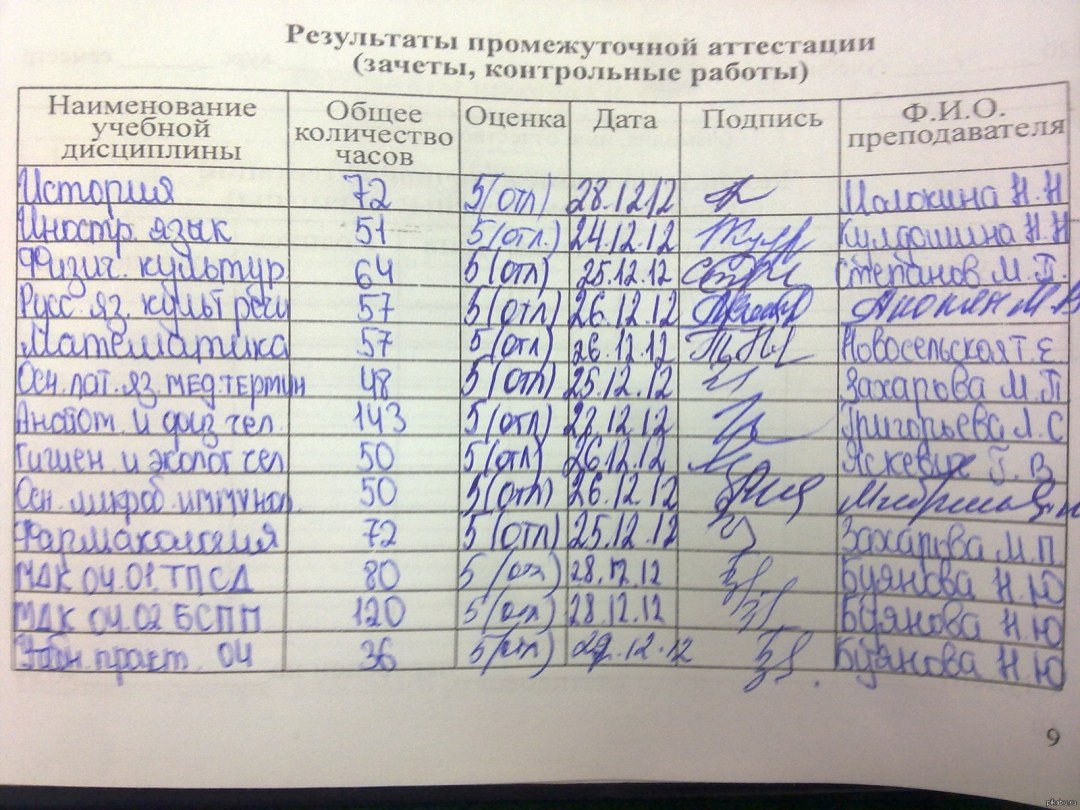 Результаты промежуточной аттестации
(зачеты, контрольные работы)
Наименование учебной дисциплины Общее количество часов Оценка Дата Подпись Ф.И.О. преподавателя
История 72 5(отл) 28.12.12 Н.Н
Иностр. язык 51 5(отл.) 24.12.12 Н.Н
Физич. культур 64 5(отл) 25.12.12 Степанов М.П.
Русс. яз. культ речи 57 5(отл) 26.12.12
Математика 57 5(отл) 26.12.12 Новосельская Т.Е
Осн. лат. яз. мед. термин 48 5(отл) 25.12.12 Захарова М.П
Анатом. и физ чел. 143 5(отл) 12.12 Григорьева Л.С
Гигиен. и эколог чел 50 5(отл) 26.12.12 Яскевич Г.В
Осн. микроб. иммунол. 50 5(отл) 26.12.12
Фармакология 72 5(отл) 25.12.12 Захарова М.П
МДК 04.01.ТПСД 80 5(отл) 28.12.12 Буянова Н.Ю
МДК 04.02 БСПП 120 5(отл) 28.12.12 Буянова Н.Ю
практ. 04 36 5(отл) .12.12 Буянова Н.Ю
9
pikabu.ru